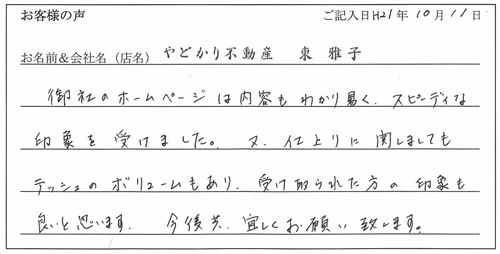 お客様の声 ご記入日H21年10月11日
お名前&会社名（店名） やどかり不動産 東 雅子
御社のホームページは内容もわかり易く、スピーディな
印象を受けました。又、仕上りに関しましても
テッシュのボリュームもあり、受け取られた方の印象も
良いと思います。 今後共、宜しくお願い致します。